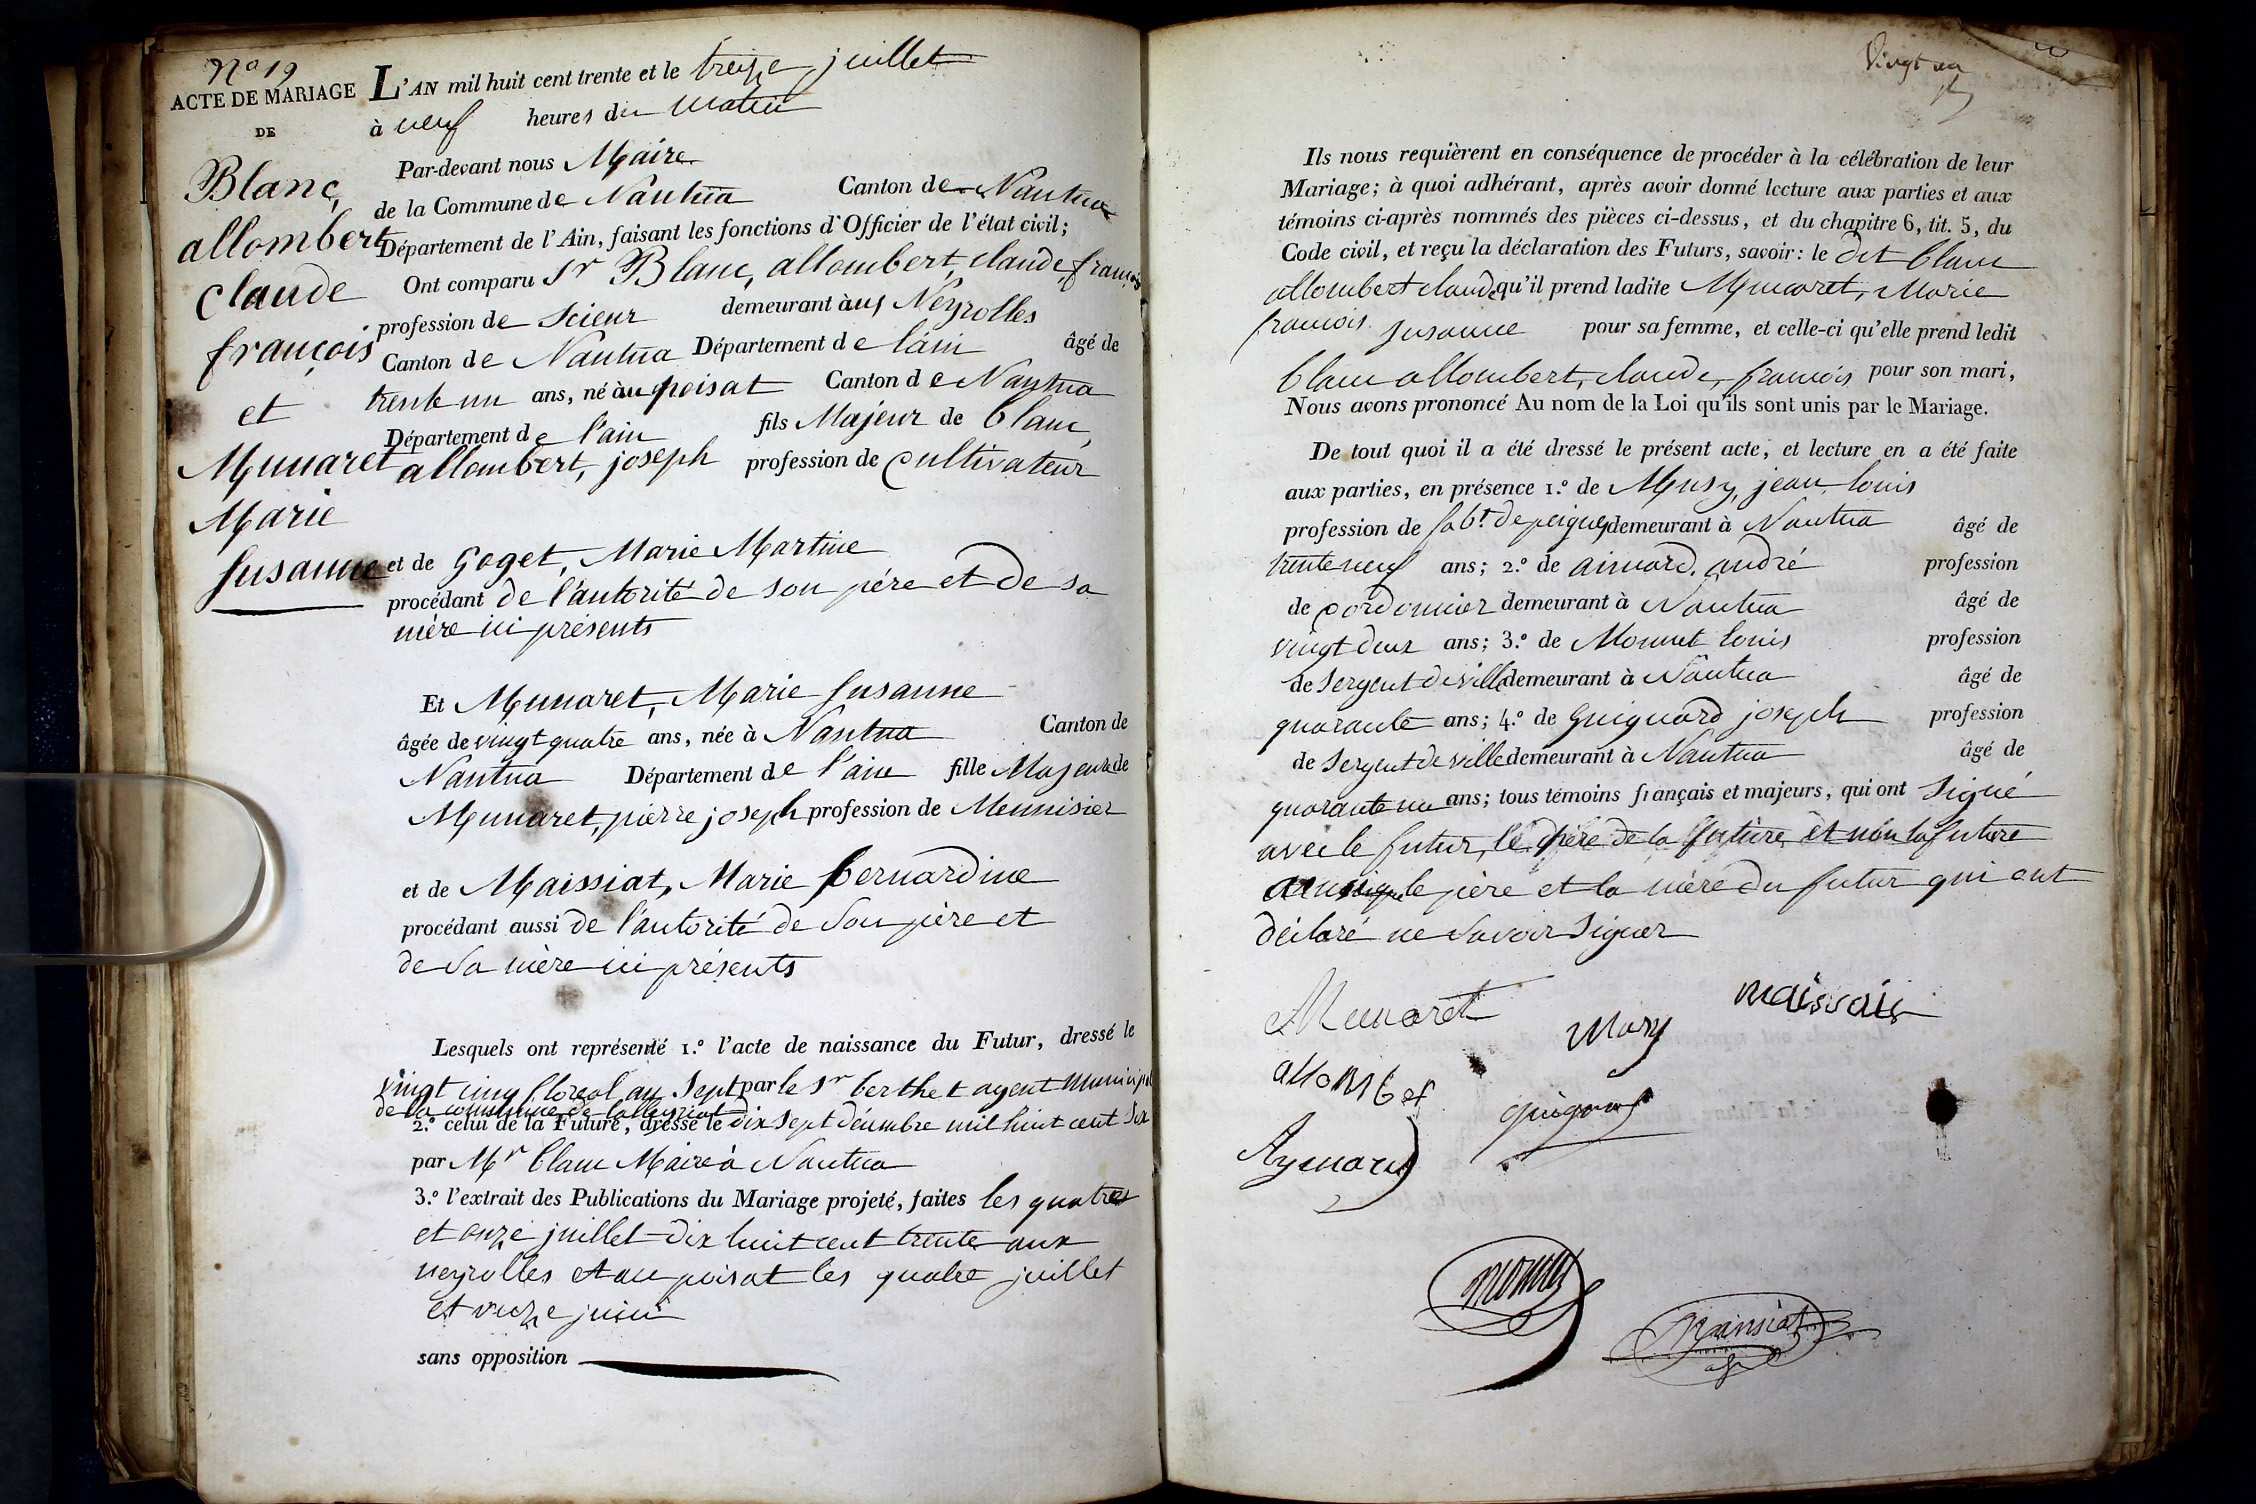 No 19
ACTE DE MARIAGE
DE
Blanc,
allombert
Claude
françois
et
Munaret
Marie
Susanne
L'AN mil huit cent trente et le treize juillet
à neuf heures du matin
Par-devant nous Maire
de la Commune de Nantua Canton de Nantua
Département de l'Ain, faisant les fonctions d'Officier de l'état civil;
Ont comparu Sr Blanc, allombert, claude, françois
profession de Scieur demeurant aux Neyrolles
Canton de Nantua Département de l'ain âgé de
trente un ans, né au poisat Canton de Nantua
Département de l'ain fils Majeur de blanc,
allombert, joseph profession de Cultivateur
et de Goget, Marie Martine
procédant de l'autorité de son père et de sa
mère ici présents
Et Munaret, Marie Susanne
âgée de vingt quatre ans, née à Nantua Canton de
Nantua Département de l'ain fille Majeure de
Munaret, pierre joseph profession de Menuisier
et de Maissiat, Marie bernardine
procédant aussi de l'autorité de son père et
de sa mère ici présents
Lesquels ont représenté 1.º l'acte de naissance du Futur, dressé le
vingt cinq floreal an Sept par le Sr berthet agent Municipal
de la commune de lalleyriat
2.º celui de la Future, dressé le dix sept décembre mil huit cent six
par Mr blanc Maire à Nantua
3.º l'extrait des Publications du Mariage projeté, faites les quatre
et onze juillet dix huit cent trente aux
neyrolles et au poisat les quatre juillet
et onze juin
sans opposition
Vingt un
Ils nous requièrent en conséquence de procéder à la célébration de leur
Mariage; à quoi adhérant, après avoir donné lecture aux parties et aux
témoins ci-après nommés des pièces ci-dessus, et du chapitre 6, tit. 5, du
Code civil, et reçu la déclaration des Futurs, savoir: le dit blanc
allombert claude qu'il prend ladite Munaret, Marie
françois Susanne pour sa femme, et celle-ci qu'elle prend ledit
blanc allombert, claude, françois pour son mari,
Nous avons prononcé Au nom de la Loi qu'ils sont unis par le Mariage.
De tout quoi il a été dressé le présent acte, et lecture en a été faite
aux parties, en présence 1.º de Musy, jean louis
profession de fabt. de peignes demeurant à Nantua âgé de
trente neuf ans; 2.º de aimard, andré profession
de Cordonnier demeurant à Nantua âgé de
vingt deux ans; 3.º de Monnet louis profession
de Sergent de ville demeurant à Nantua âgé de
quarante ans; 4.º de Guignard joseph profession
de Sergent de ville demeurant à Nantua âgé de
quarante un ans; tous témoins français et majeurs, qui ont signé
avec le futur, le père de la future, et non la future
le père et la mère du futur qui ont
déclaré ne savoir signer
Munaret
Musy
maissait
allombet
guignard
Aymard
monnet
Mainsiat